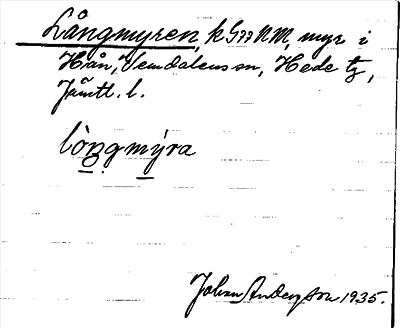 Långmyren, k G77 NM, myr i
Hån, Vemdalens sn, Hede tg,
Jämtl. l.
lòngmỳra
Johan Anderzson 1935.